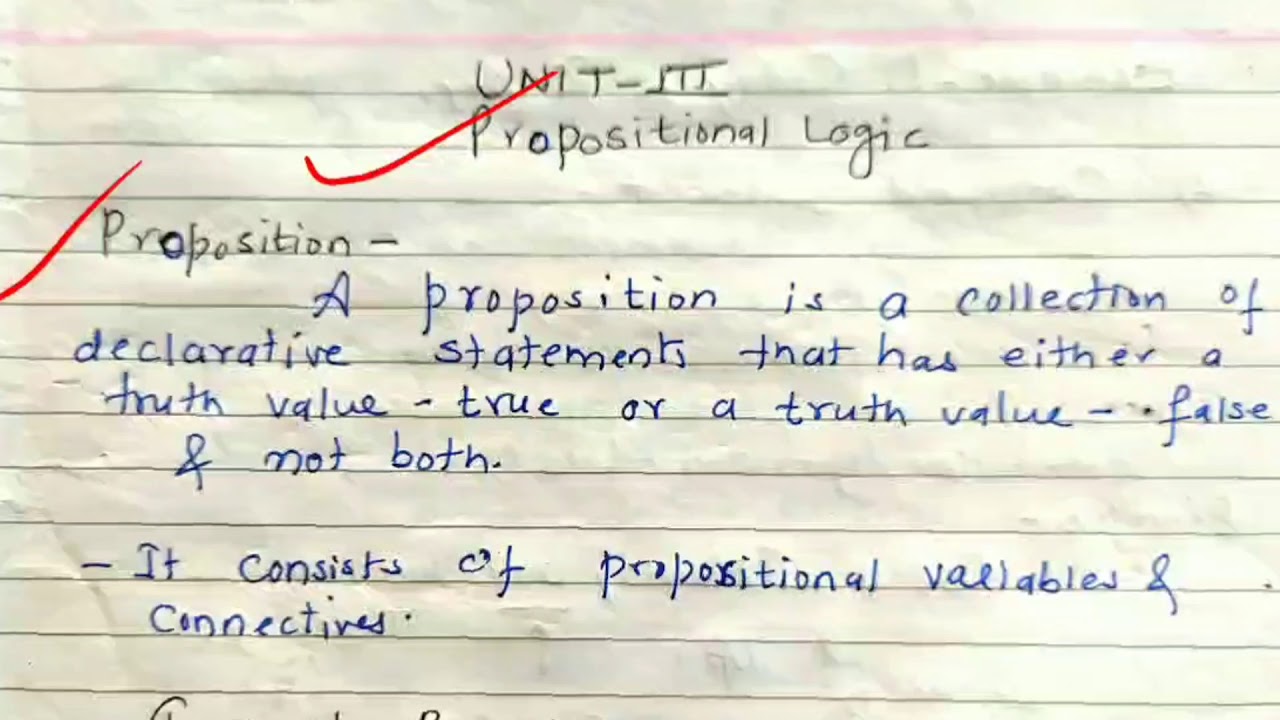 UNIT-III
Propositional Logic
Proposition -
A proposition is a collection of
declarative statements that has either a
truth value - true or a truth value - false
& not both.
- It consists of propositional variables &
Connectives.